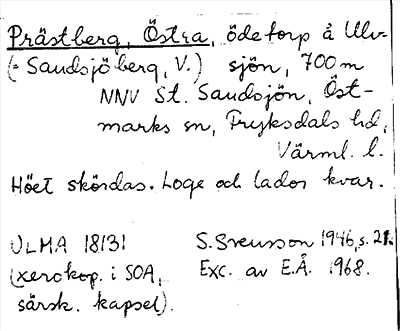 Prästberg, Östra, ödetorp å Ulv-
(= Sandsjöberg, V.) sjön, 700 m
NNV St. Sandsjön, Öst-
marks sn, Fryksdals hd,
Värml. l.
Höet skördas. Loge och lador kvar.
ULMA 18131 S. Svensson 1946, s. 21.
(xerokop. i SOA, Exc. av E.Å. 1968.
särsk. kapsel).